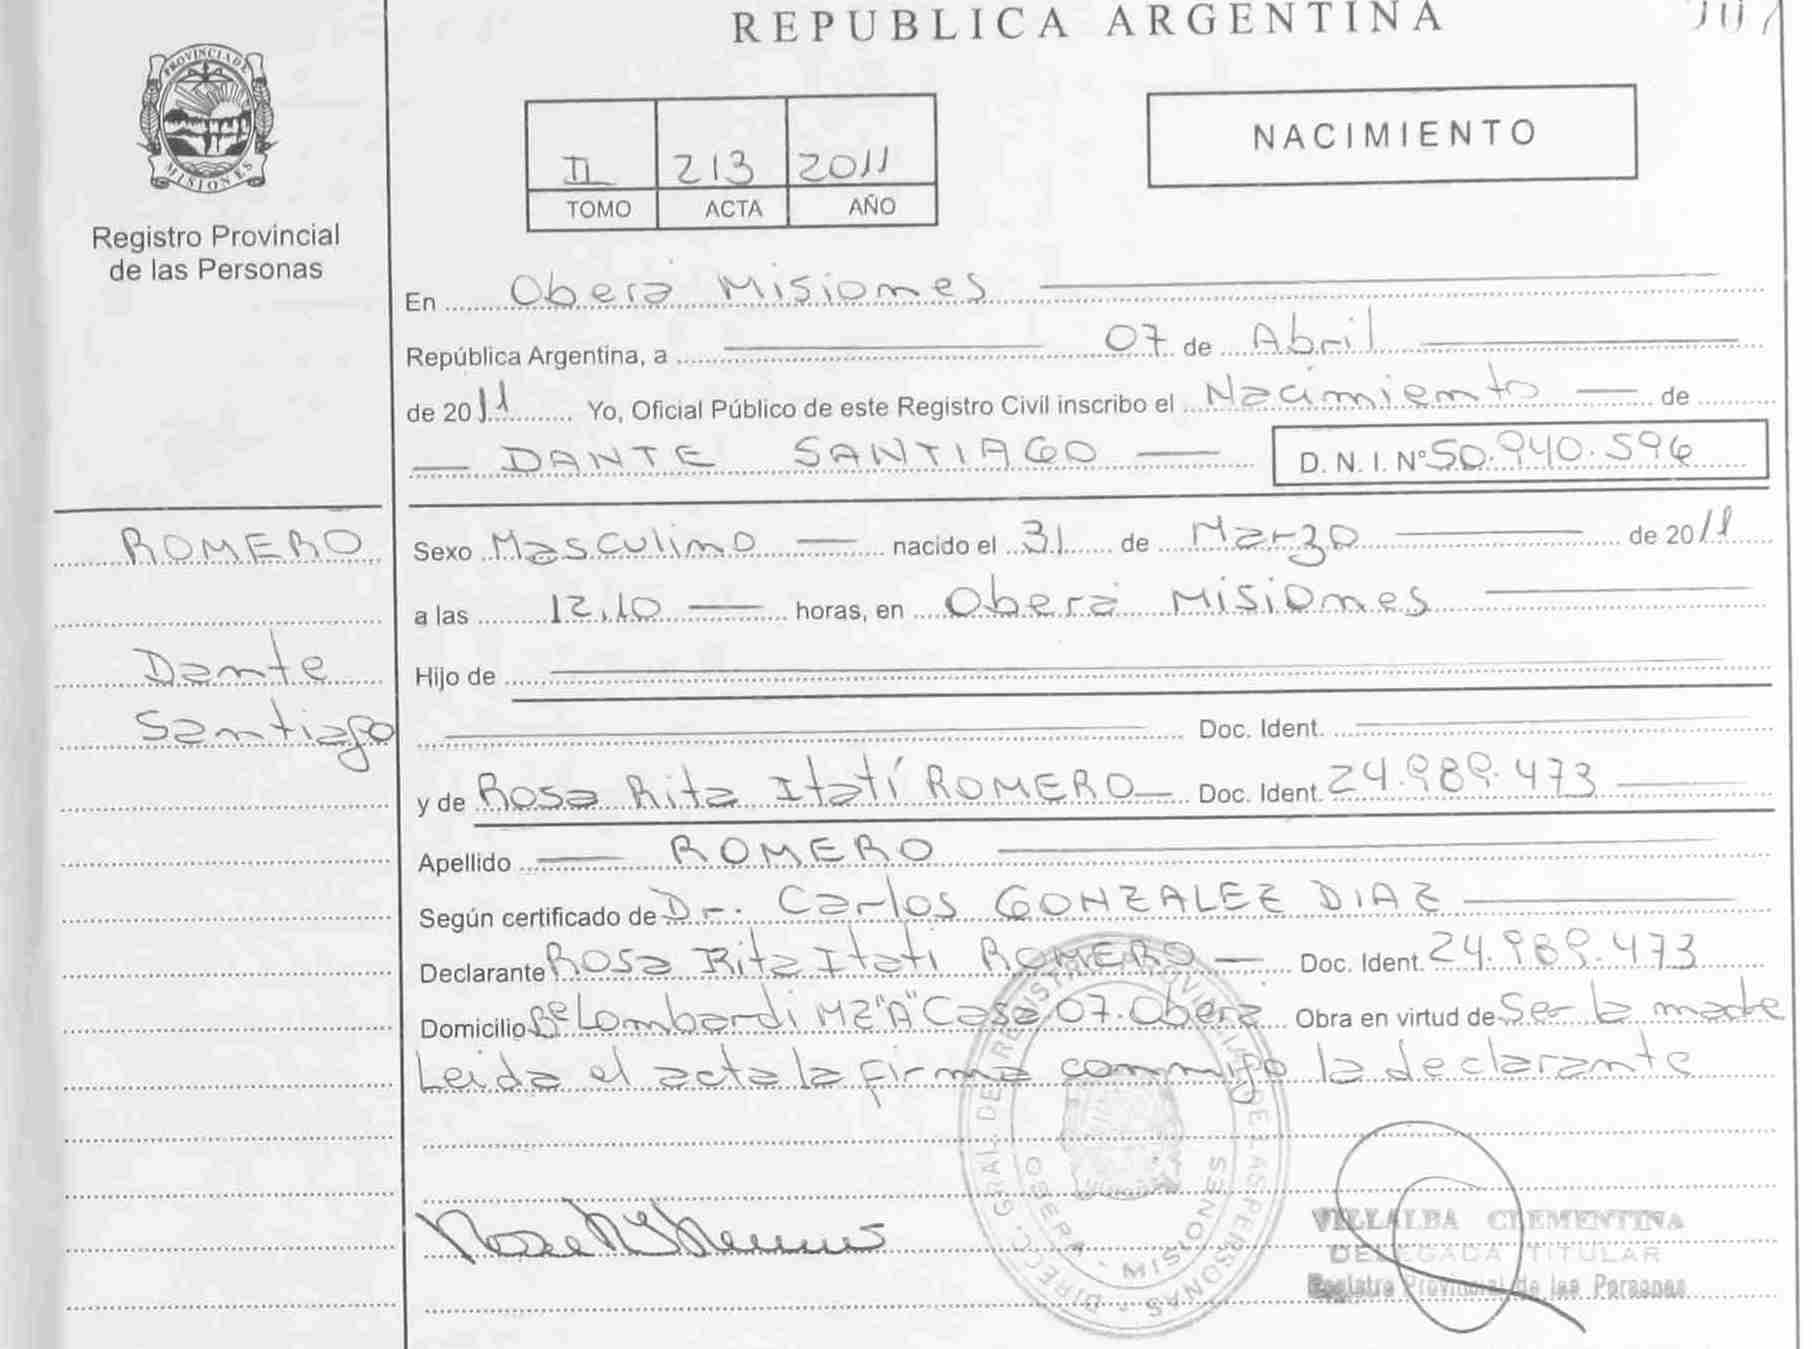 REPUBLICA ARGENTINA
PROVINCIA DE
MISIONES
Registro Provincial
de las Personas
II 213 2011
TOMO ACTA AÑO
NACIMIENTO
En Oberá Misiones
República Argentina, a 07 de Abril
de 2011 Yo, Oficial Público de este Registro Civil inscribo el Nacimiento de
DANTE SANTIAGO D. N. I. Nº 50.940.596
ROMERO
Dante
Santiago
Sexo Masculino nacido el 31 de Marzo de 2011
a las 12,10 horas, en Oberá Misiones
Hijo de
Doc. Ident.
y de Rosa Rita Itatí ROMERO Doc. Ident. 24.989.473
Apellido ROMERO
Según certificado de Dr. Carlos GONZALEZ DIAZ
Declarante Rosa Rita Itati ROMERO Doc. Ident. 24.989.473
Domicilio Bº Lombardi MZ "A" Casa 07. Oberá Obra en virtud de Ser la madre
Leida el acta la firma conmigo la declarante
DIREC. GRAL. DE REGISTRO PROVINCIAL DE LAS PERSONAS
OBERA - MISIONES
VILLALBA CLEMENTINA
DELEGADA TITULAR
Registro Provincial de las Personas